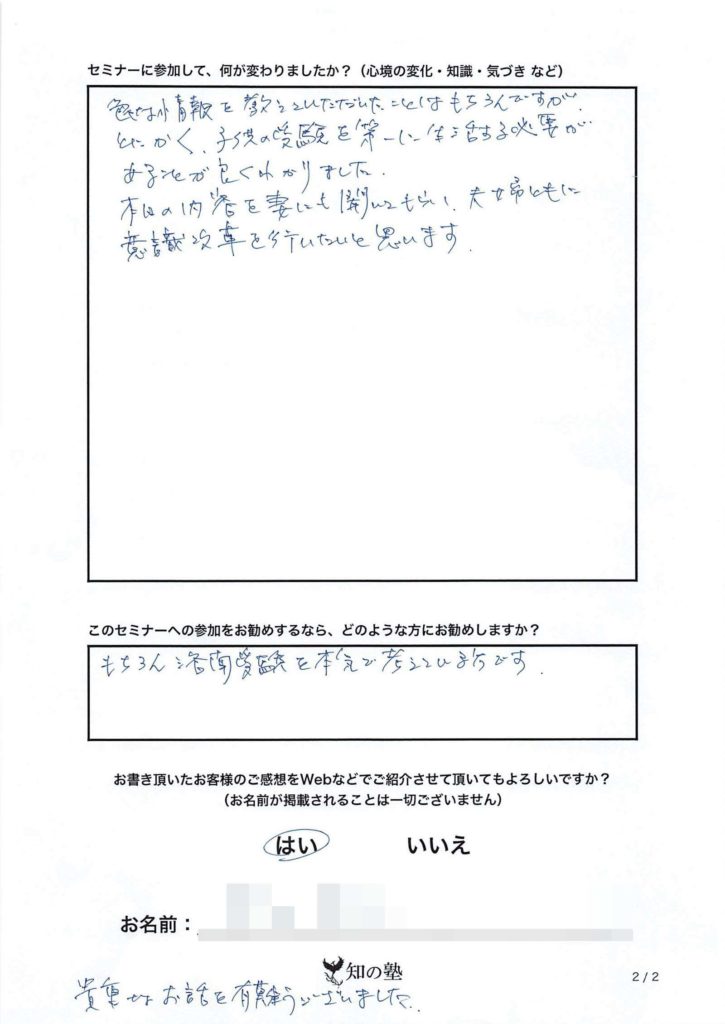 セミナーに参加して、何が変わりましたか？（心境の変化・知識・気づき など）
色々な情報を教えていただいたことはもちろんですが、
とにかく、子供の受験を第一に生活する必要が
あることが良くわかりました。
本日の内容を妻にも聞いてもらい、夫婦ともに
意識改革を行いたいと思います。
このセミナーへの参加をお勧めするなら、どのような方にお勧めしますか？
もちろん洛南受験を本気で考えている方です。
お書き頂いたお客様のご感想をWebなどでご紹介させて頂いてもよろしいですか？
（お名前が掲載されることは一切ございません）
はい いいえ
お名前：
知の塾
2 / 2
貴重なお話を有難うございました。